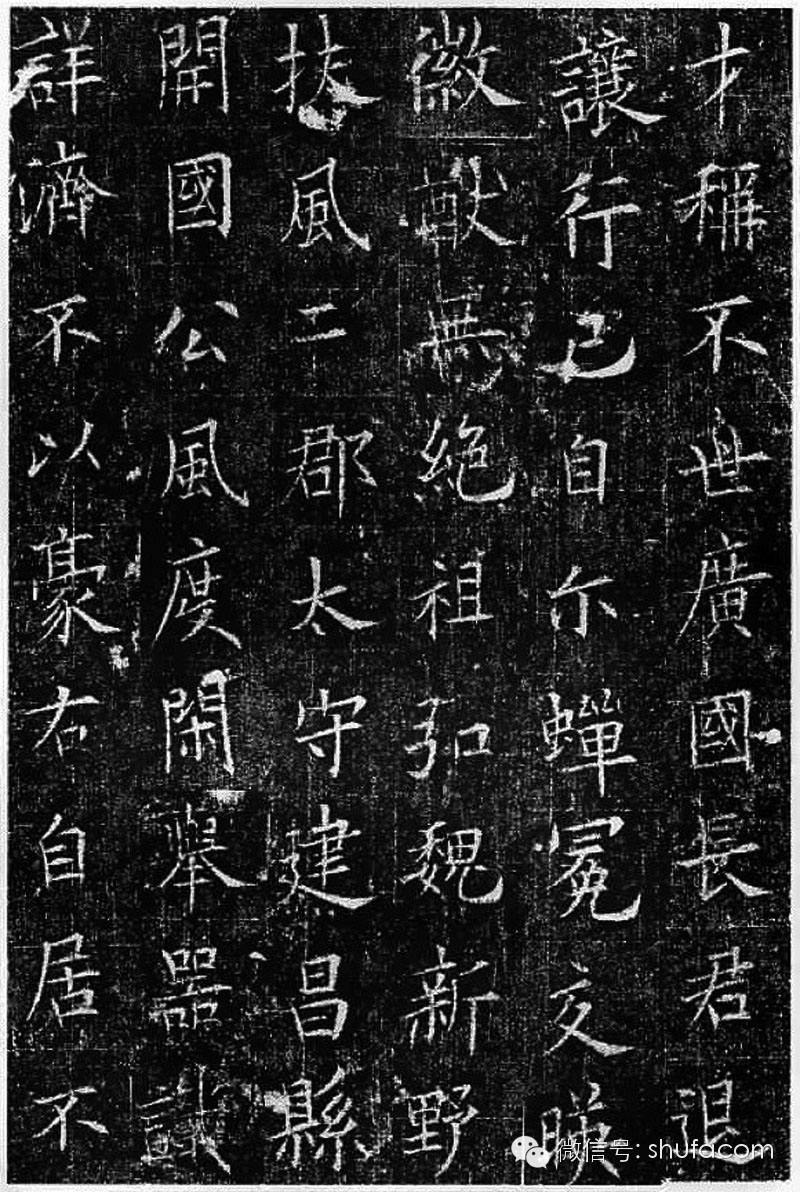 才稱不世廣國長君退
讓行己自尒蟬冕交暎
徽猷無絶祖弘魏新野
扶風二郡太守建昌縣
開國公風度閑舉器識
詳濟不以豪右自居不
微信号: shufacom